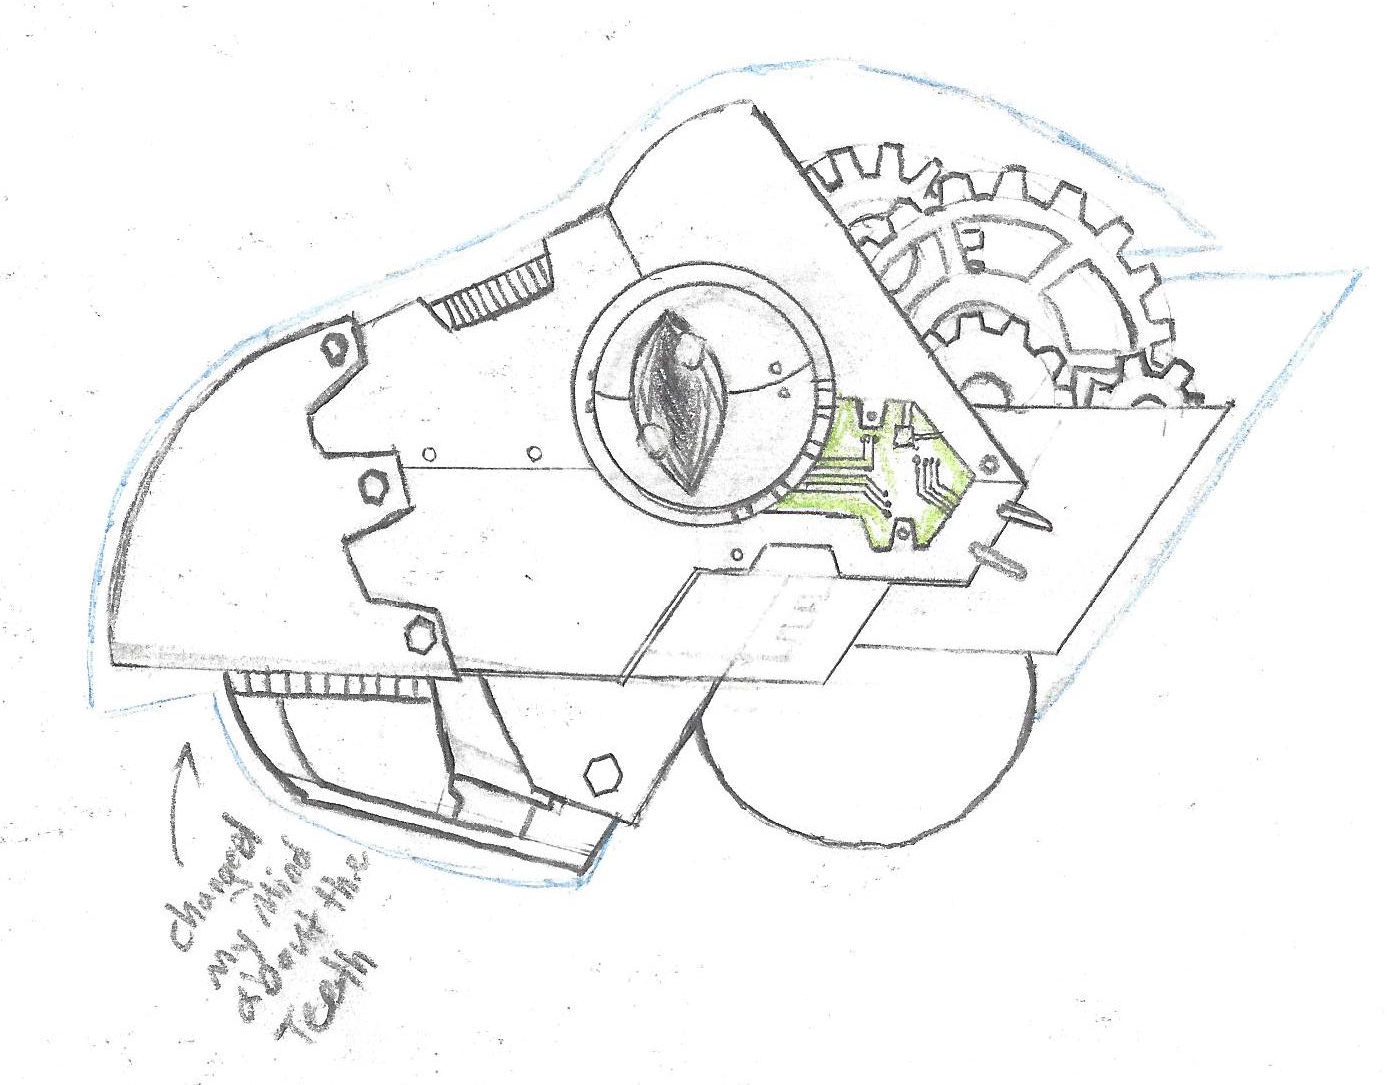 Changed
my Mind
about the
Teeth